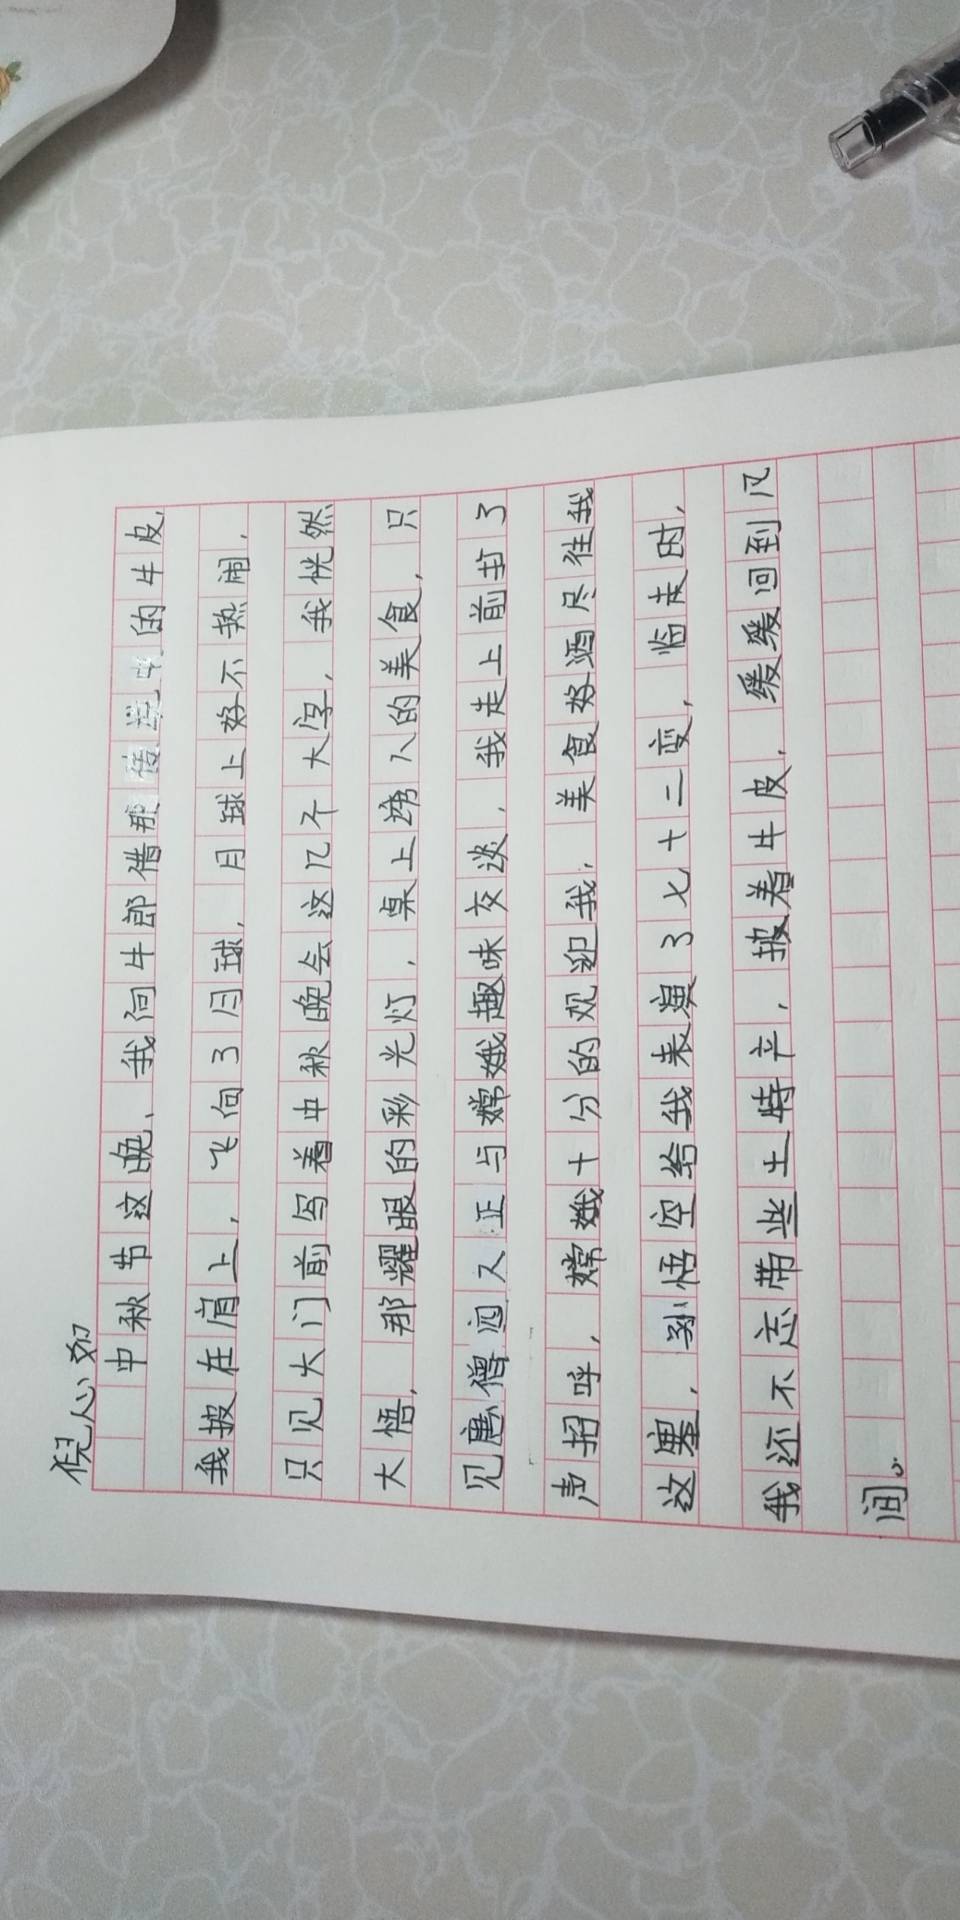 倪心如
中秋节这晚、我向牛郎借那传说中的牛皮,
我披在肩上,飞向了月球,月球上好不热闹,
只见大门前写着中秋晚会这几个大字,我恍然
大悟,那耀眼的彩光灯,桌上诱人的美食,只
见唐僧四人正与嫦娥趣味交谈,我走上前打了
声招呼,嫦娥十分的观迎我,美食好酒尽往我
这塞,孙悟空给我表演了七十二变,临走时,
我还不忘带些土特产,披着牛皮,缓缓回到凡
间。